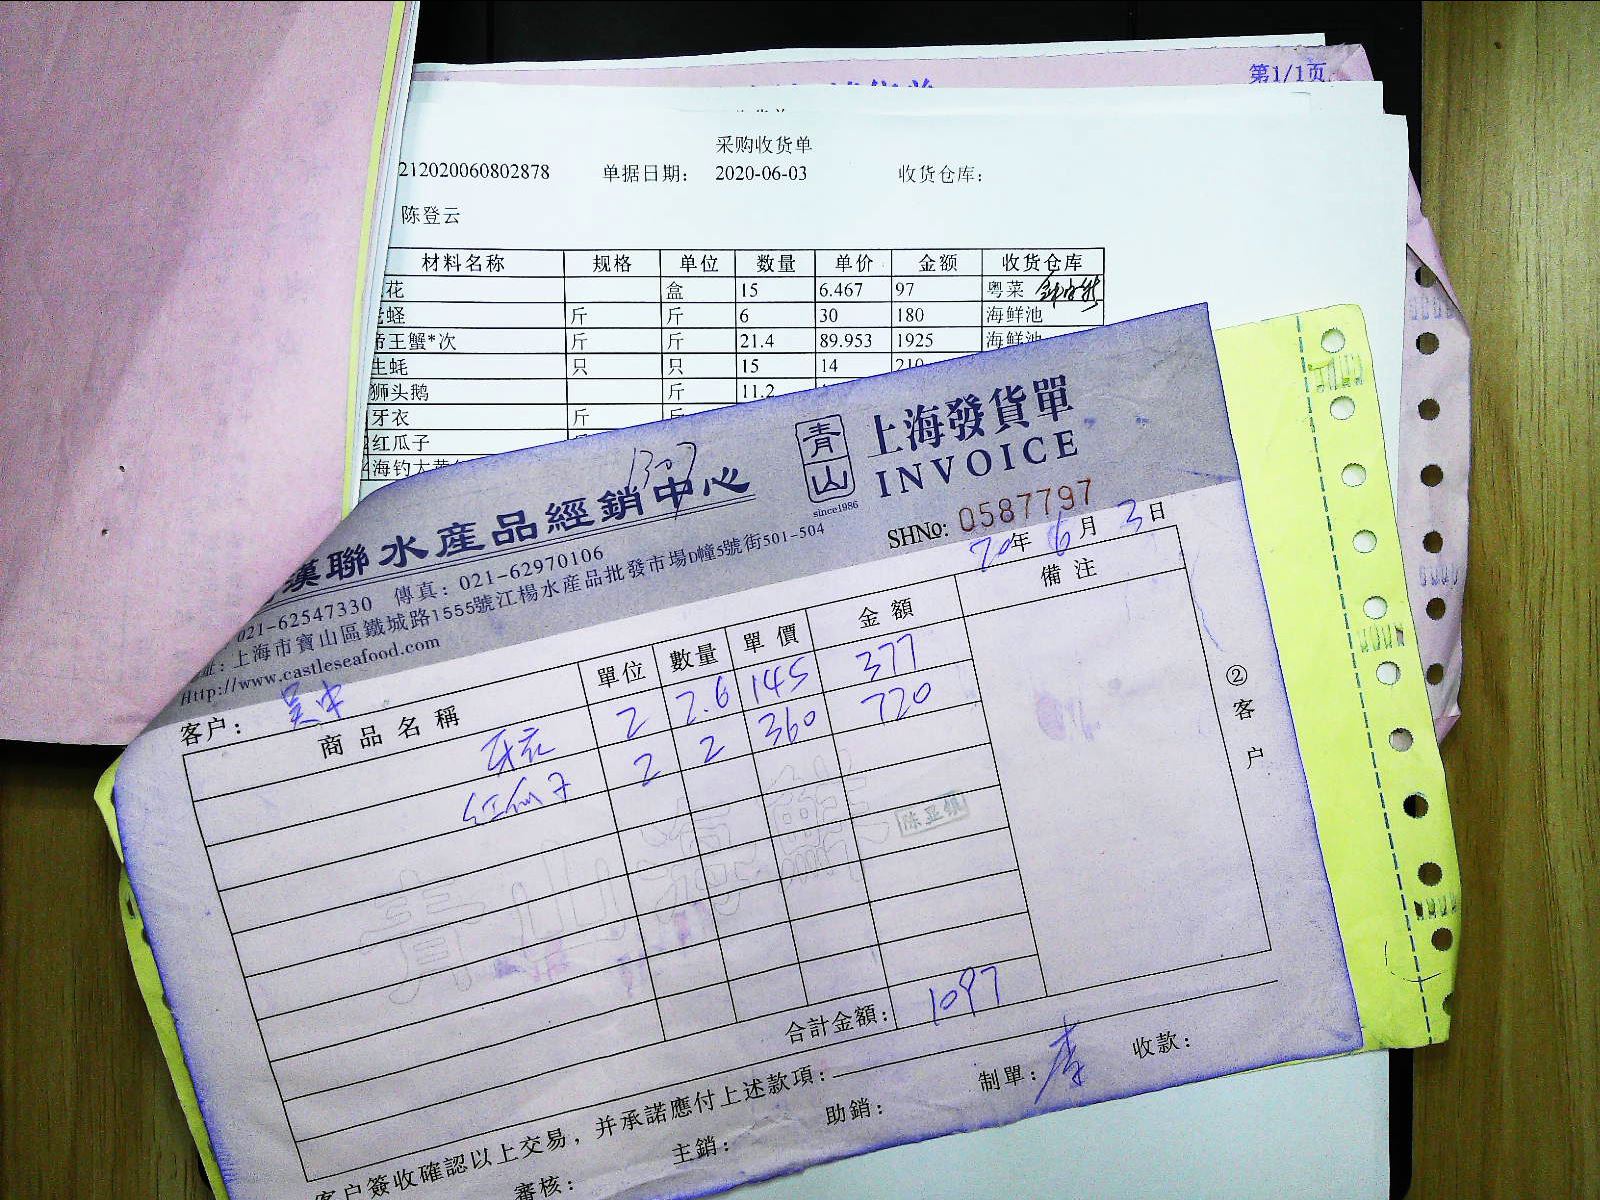 第1/1页
采购收货单
212020060802878 单据日期： 2020-06-03 收货仓库：
陈登云
材料名称 规格 单位 数量 单价 金额 收货仓库
花 盒 15 6.467 97 粤菜
蛏 斤 斤 6 30 180 海鲜池
帝王蟹*次 斤 斤 21.4 89.953 1925 海鲜池
生蚝 只 只 15 14 210
狮头鹅 斤 11.2
牙衣 斤 斤
红瓜子
海钓大黄
漢聯水產品經銷中心
青山
since1986
上海發貨單
INVOICE
SHNo: 0587797
021-62547330 傳真: 021-62970106
址: 上海市寶山區鐵城路1555號江楊水產品批發市場D幢5號街501-504
Http://www.castleseafood.com
20年 6月 3日
客户： 吴中
商品名稱 單位 數量 單價 金額 備注
牙衣 2 2.6 145 377
红瓜子 2 2 360 720
青山海鮮
陈亚镇
②客户
合計金額: 1097
客户簽收確認以上交易，并承諾應付上述款項:
審核: 主銷: 助銷: 制單: 李 收款: